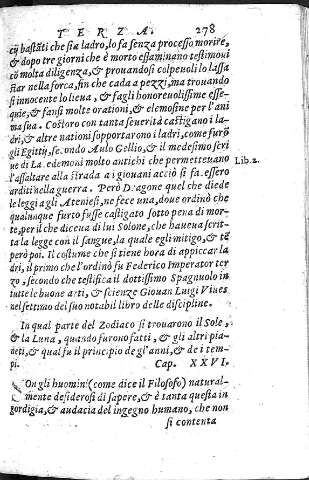 TERZA. 278
cij bastāti che sia ladro, lo fa senza processo morire,
& dopo tre giorni che è morto essaminano testimoni
cō molta diligenza, & prouandosi colpeuoli lo lassa
star nella forca, fin che cada a pezzi, ma trouando
si innocente lo lieua, & fagli honoreuolissime esse-
quie, & fansi molte orationi, & elemosine per l'ani
ma sua. Costoro con tanta seuerità castigano i la-
dri, & altre nationi sopportarono i ladri, come furō
gli Egittij, secondo Aulo Gellio, & il medesimo scri
ue di Lacedemoni molto antichi che permetteuano Lib.2.
l'assaltare alla strada a i giouani acciò si fassero
arditi nella guerra. Però Dragone quel che diede
le leggi a gli Ateniesi, ne fece una, doue ordinò che
qualunque furto fusse castigato sotto pena di mor-
te, per il che diceua di lui Solone, che haueua scrit-
ta la legge con il sangue, la quale egli mitigò, & tē
però poi. Il costume che si tiene hora di appiccar la
dri, il primo che l'ordinò fu Federico Imperator ter
zo, secondo che testifica il dottissimo Spagnuolo in
tutte le buone arti, & scienze Giouan Luigi Viues
nel settimo del suo notabil libro delle discipline.
In qual parte del Zodiaco si trouarono il Sole,
& la Luna, quando furono fatti, & gli altri pia-
neti, & qual fu il principio de gl'anni, & de i tem-
pi. Cap. XXVI.
On gli huomini (come dice il Filosofo) natural-
mente desiderosi di sapere, & è tanta questa in
gordigia, & audacia del ingegno humano, che non
si contenta